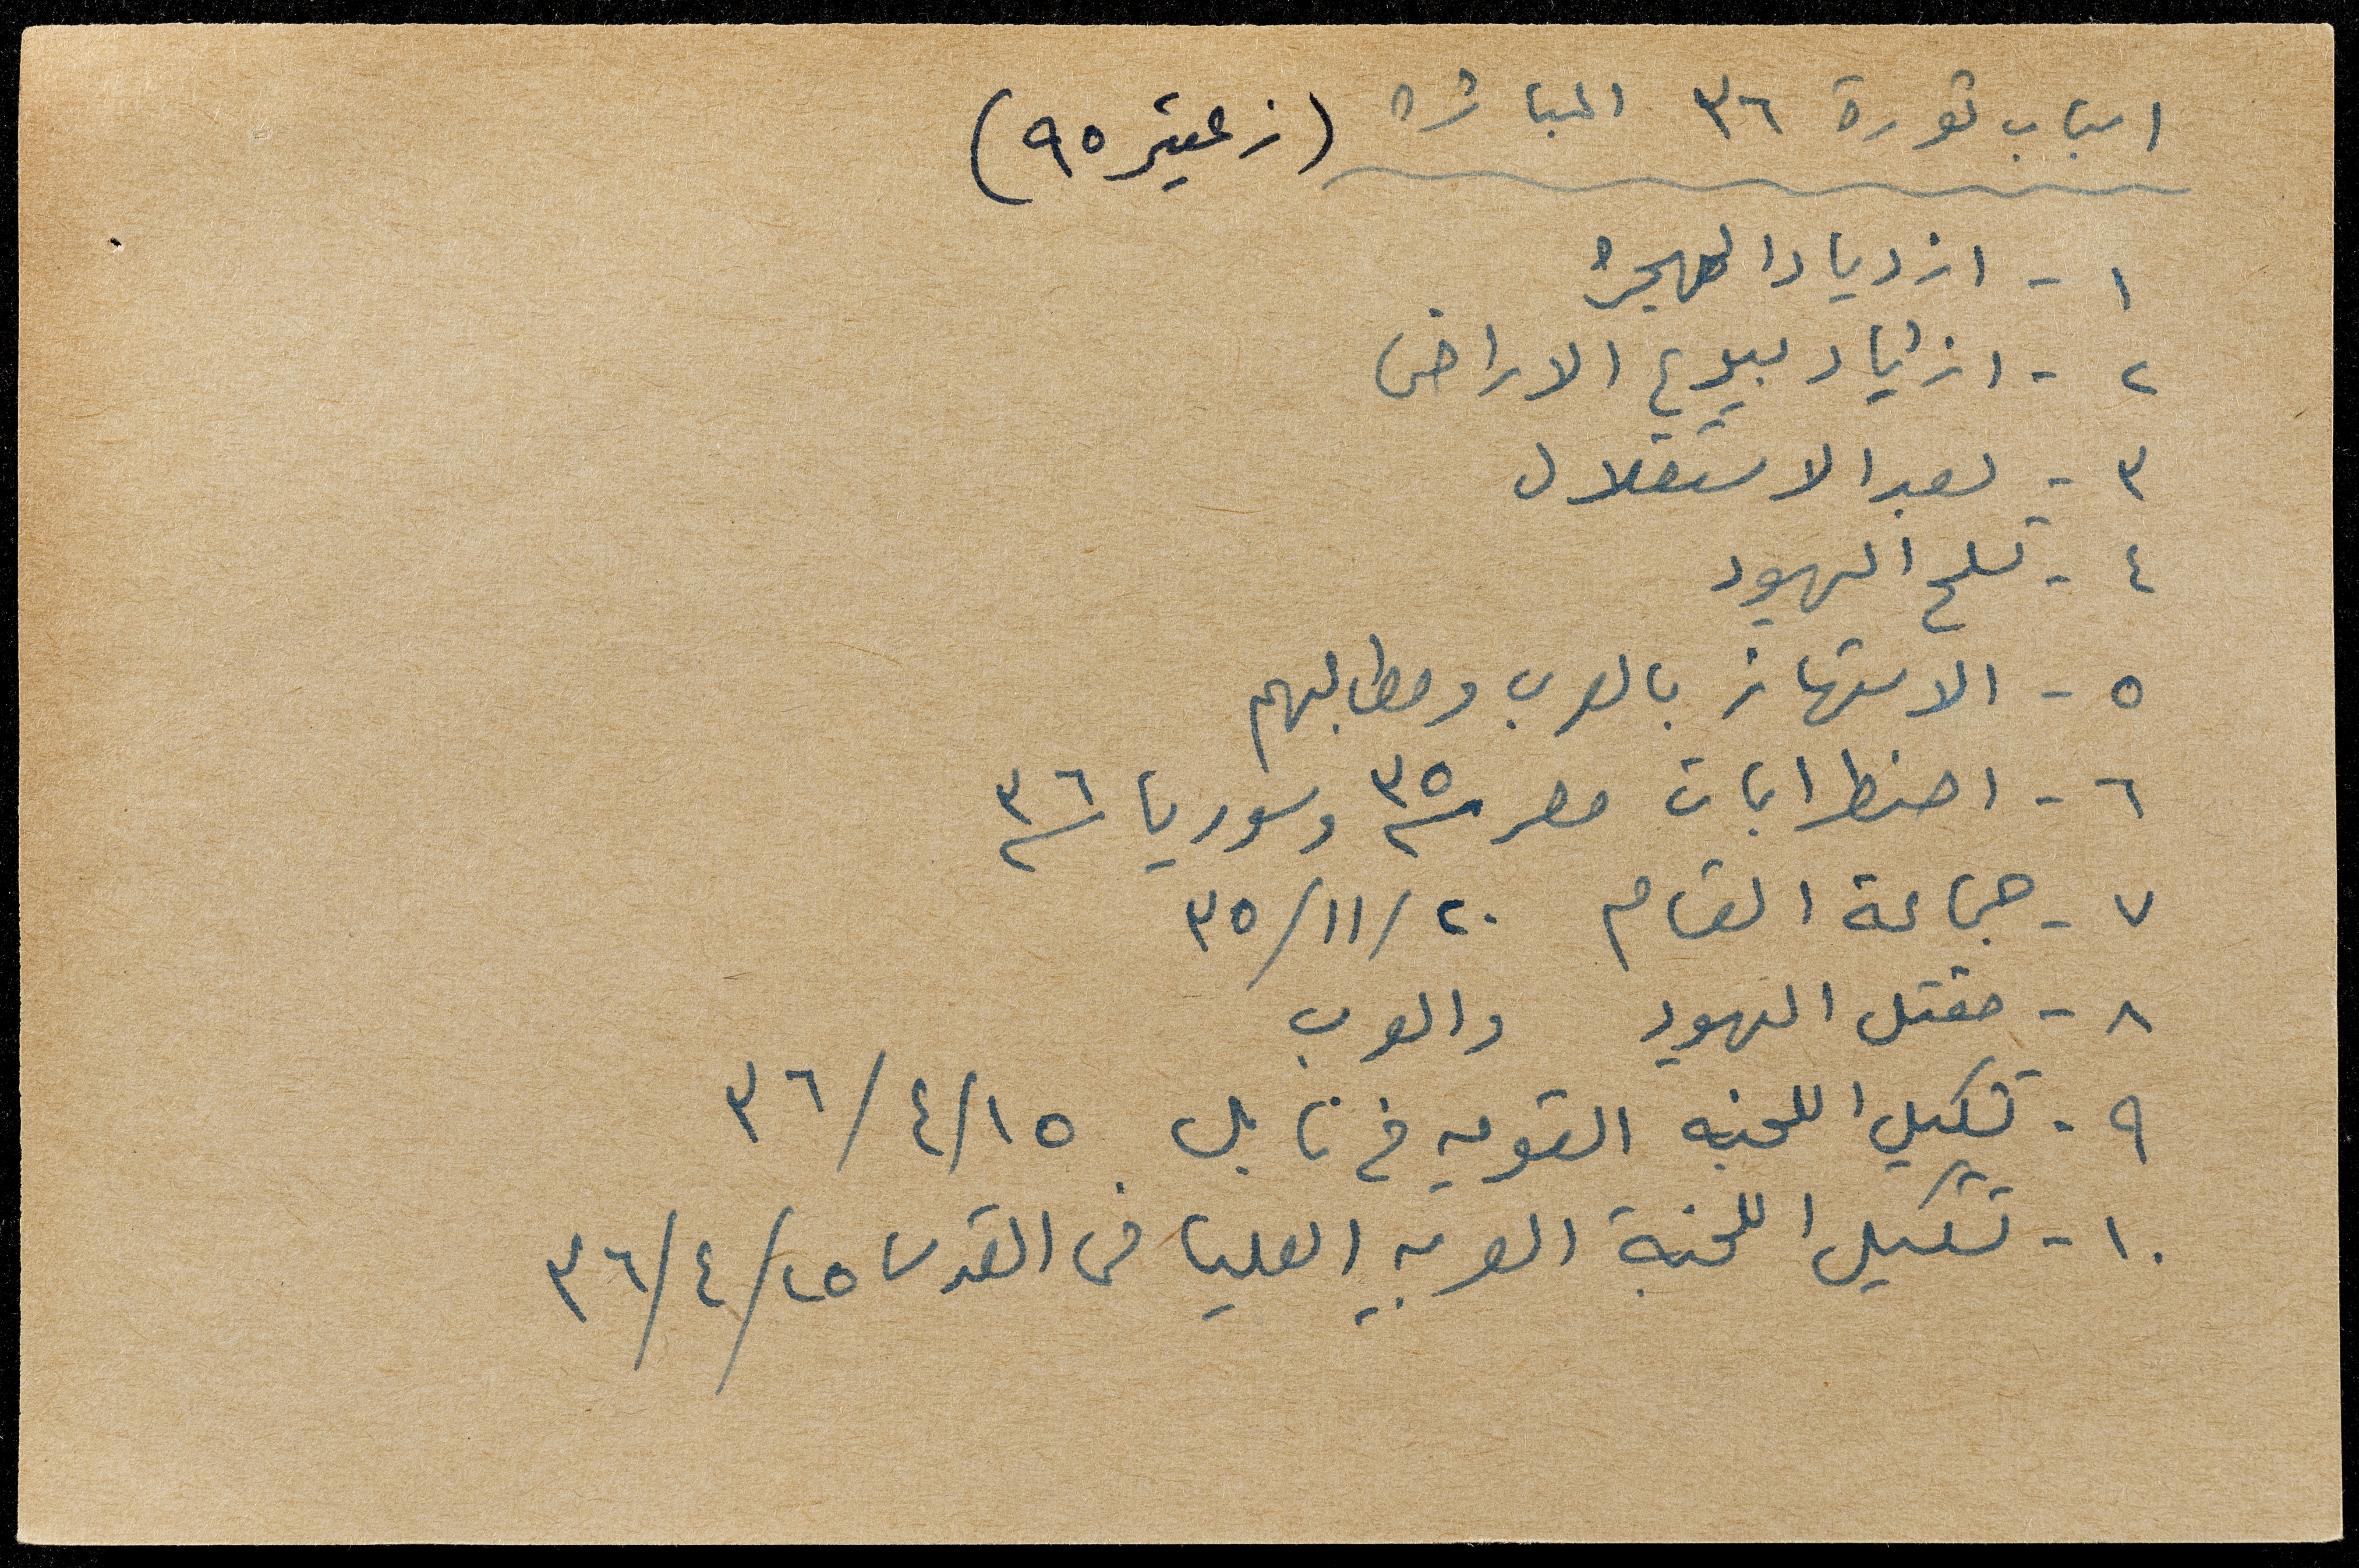 اسباب ثورة ٣٦ المباشرة (زعيتر ٩٥)
١ - ازدياد الهجرة
٢ - ازدياد بيوع الاراضي
٣ - بعد الاستقلال
٤ - تسلح اليهود
٥ - الاستهانة بالعرب ومطالبهم
٦ - اضطرابات مصر ٣٥ وسوريا ٣٦
٧ - جماعة القسام ٢٠/١١/٣٥
٨ - مقتل اليهود والعرب
٩ - تشكيل اللجنه القوميه في نابلس ١٥/٤/٣٦
١٠ - تشكيل اللجنة العربيه العليا في القدس ٢٥/٤/٣٦